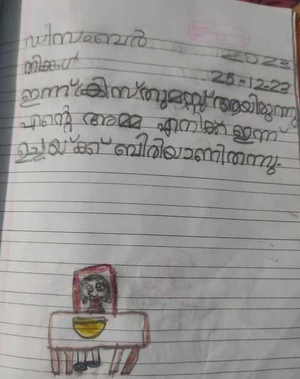 ഡിസംബർ 2023
തിങ്കൾ 25-12-23
ഇന്ന് ക്രിസ്തുമസ്സ് ആയിരുന്നു
എന്റെ അമ്മ എനിക്ക് ഇന്ന്
ഉച്ചയ്ക്ക് ബിരിയാണി തന്നു.